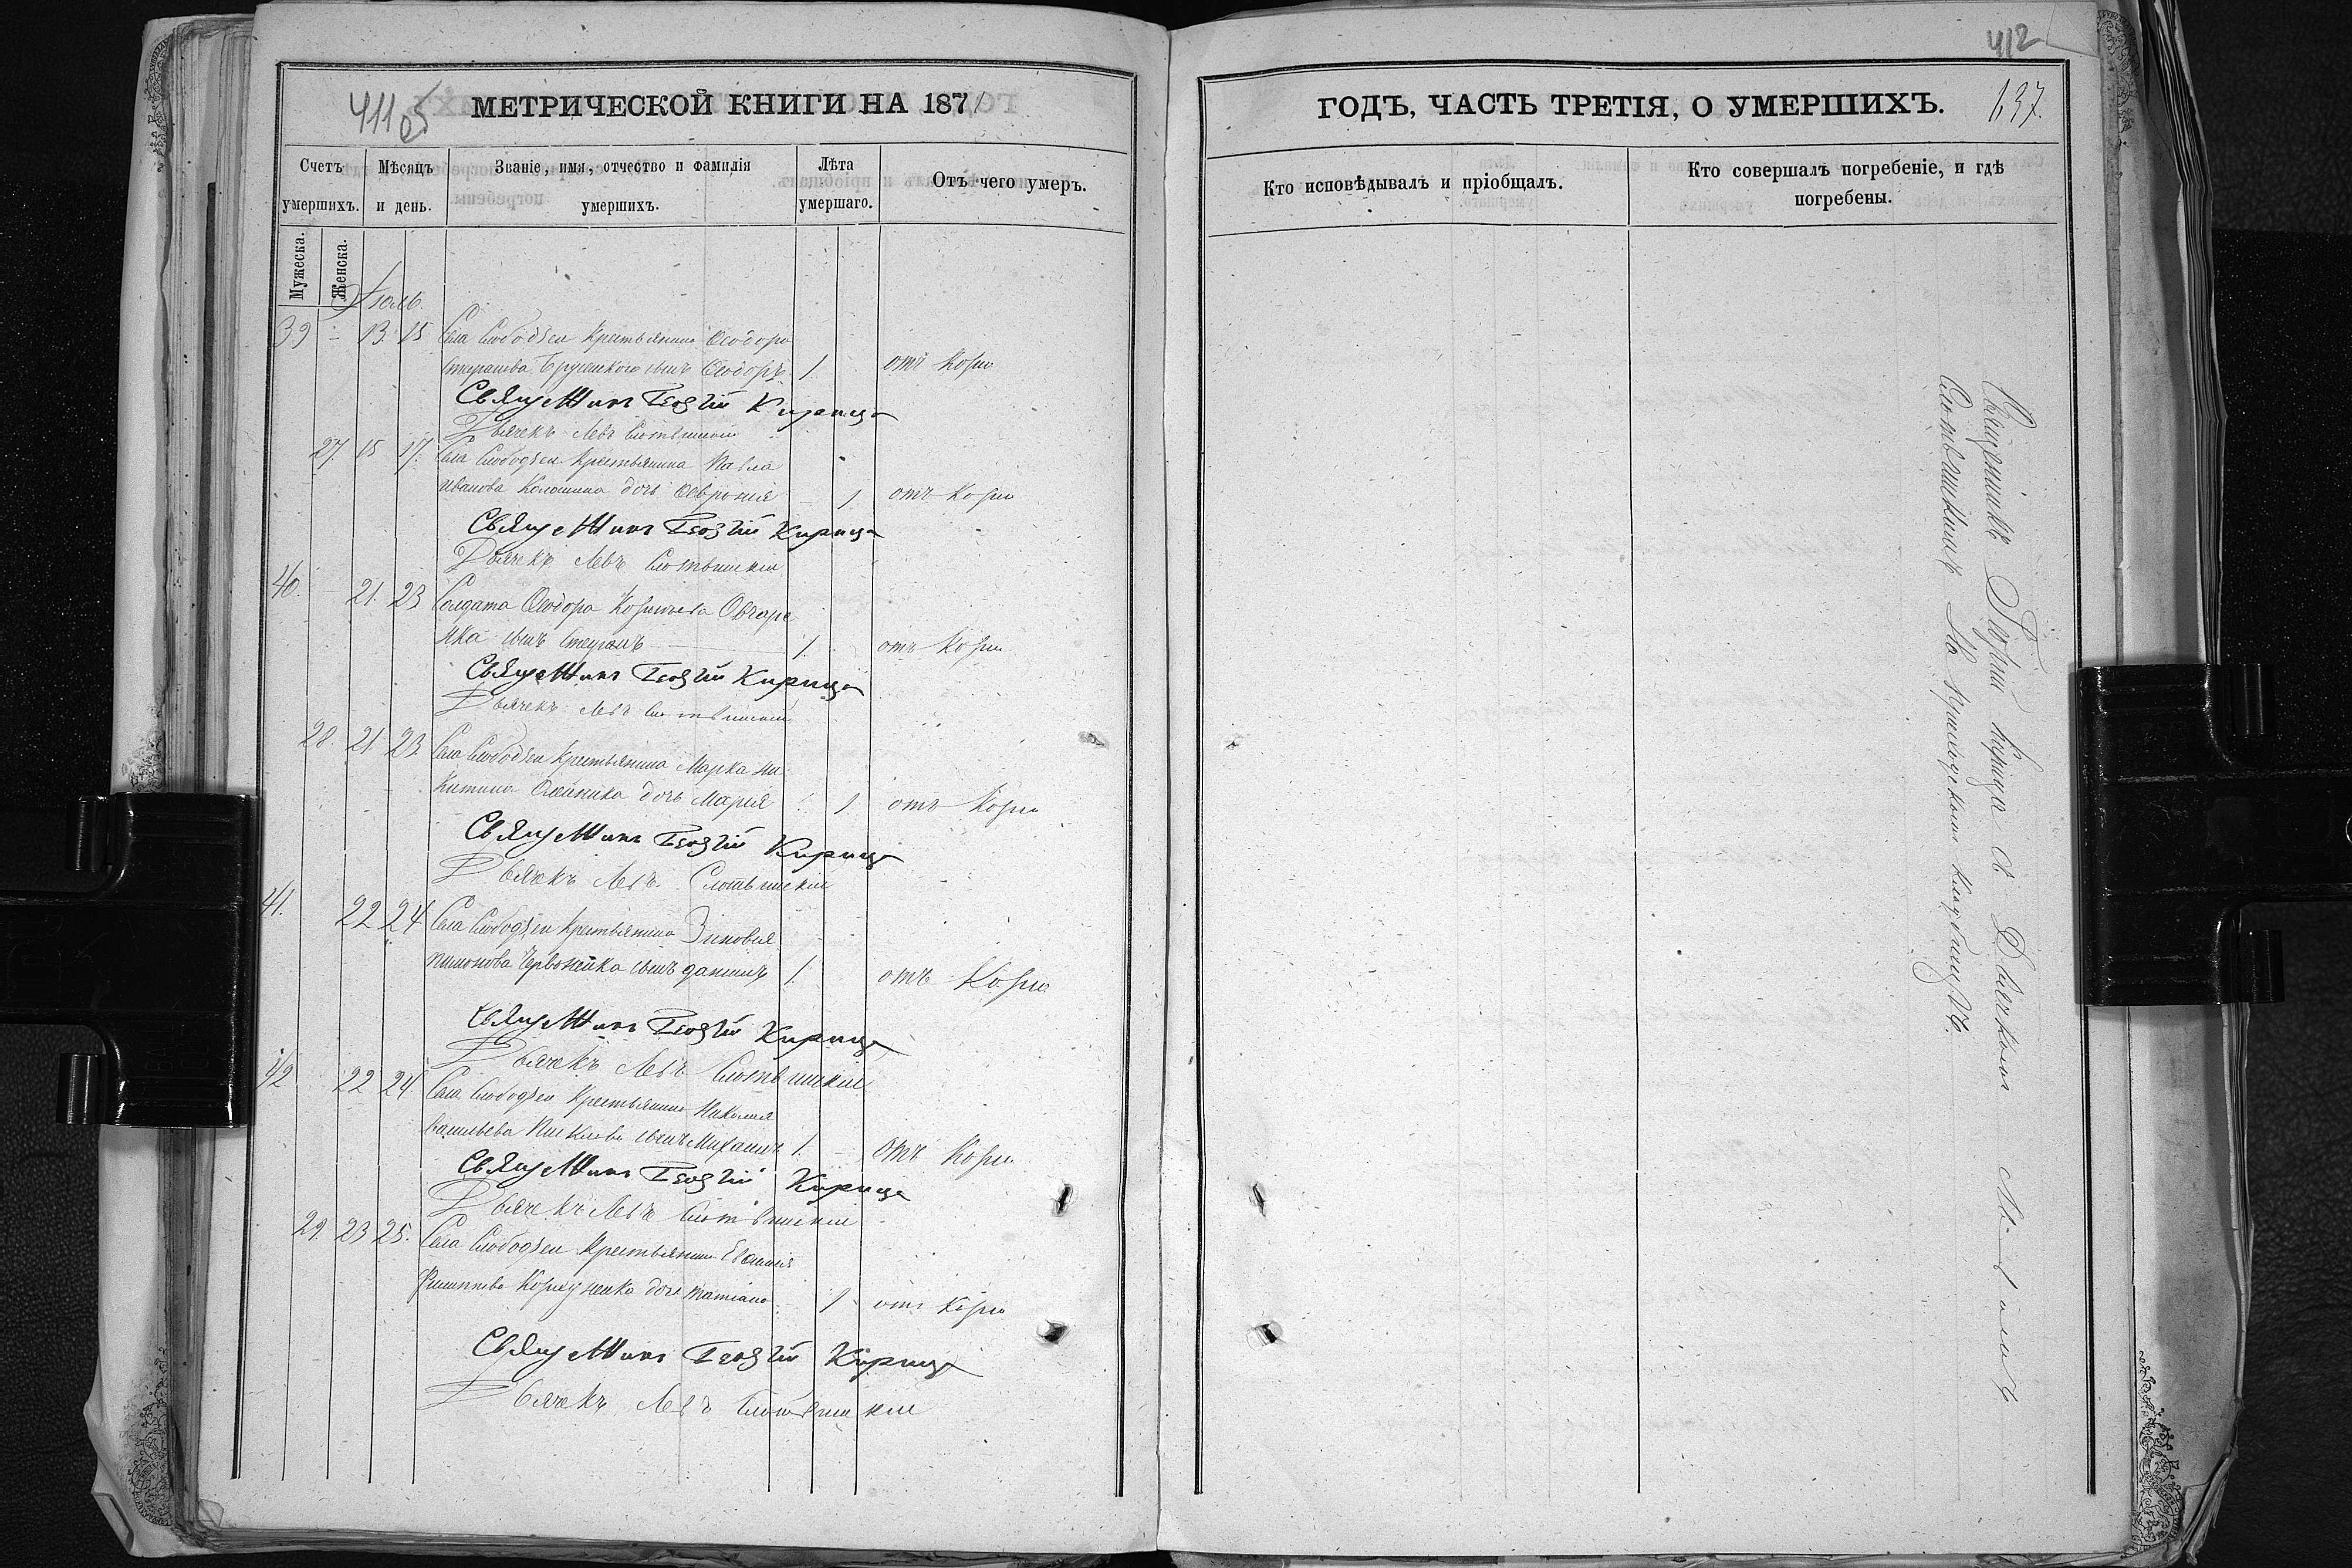 411 об
МЕТРИЧЕСКОЙ КНИГИ НА 1871
Счетъ умершихъ.
Мѣсяцъ и день.
Званіе, имя, отчество и фамилія умершихъ.
Лѣта умершаго.
Отъ чего умеръ.
Мужеска.
Женска.
Іюль
39 - 13 15 Села Слободзеи крестьянина Ѳеодора
Стефанова сынъ Ѳеодоръ 1. отъ Кори
Священникъ Георгій Кирица
Дьячекъ Левъ
27. 15 17. Села Слободзеи крестьянина Павла
Иванова дочь Ѳевронія - 1 отъ Кори
Священникъ Георгій Кирица
Дьячекъ Левъ
40. - 21. 23 Солдата Ѳеодора Овчаре
нка сынъ Стефанъ 1. отъ Кори
Священникъ Георгій Кирица
Дьячекъ Левъ
28. 21 23 Села Слободзеи крестьянина Марка Ни
китина Олейника дочь Марія 1 отъ Кори
Священникъ Георгій Кирица
Дьячекъ Левъ
41. 22 24 Села Слободзеи крестьянина Зиновія
сынъ Даніилъ 1. отъ Кори
Священникъ Георгій Кирица
Дьячекъ Левъ
42 22 24. Села Слободзеи крестьянина Николая
Васильева сынъ Михаилъ 1. - отъ Кори
Священникъ Георгій Кирица
Дьячекъ Левъ
29. 23 25. Села Слободзеи крестьянина
Филиппова дочь Татіана 1 отъ Кори
Священникъ Георгій Кирица
Дьячекъ Левъ
412
ГОДЪ, ЧАСТЬ ТРЕТІЯ, О УМЕРШИХЪ.
637.
Кто исповѣдывалъ и пріобщалъ.
Кто совершалъ погребеніе, и гдѣ погребены.
Священникъ Георгій Кирица съ Дьячкомъ
На приходскомъ кладбищѣ.